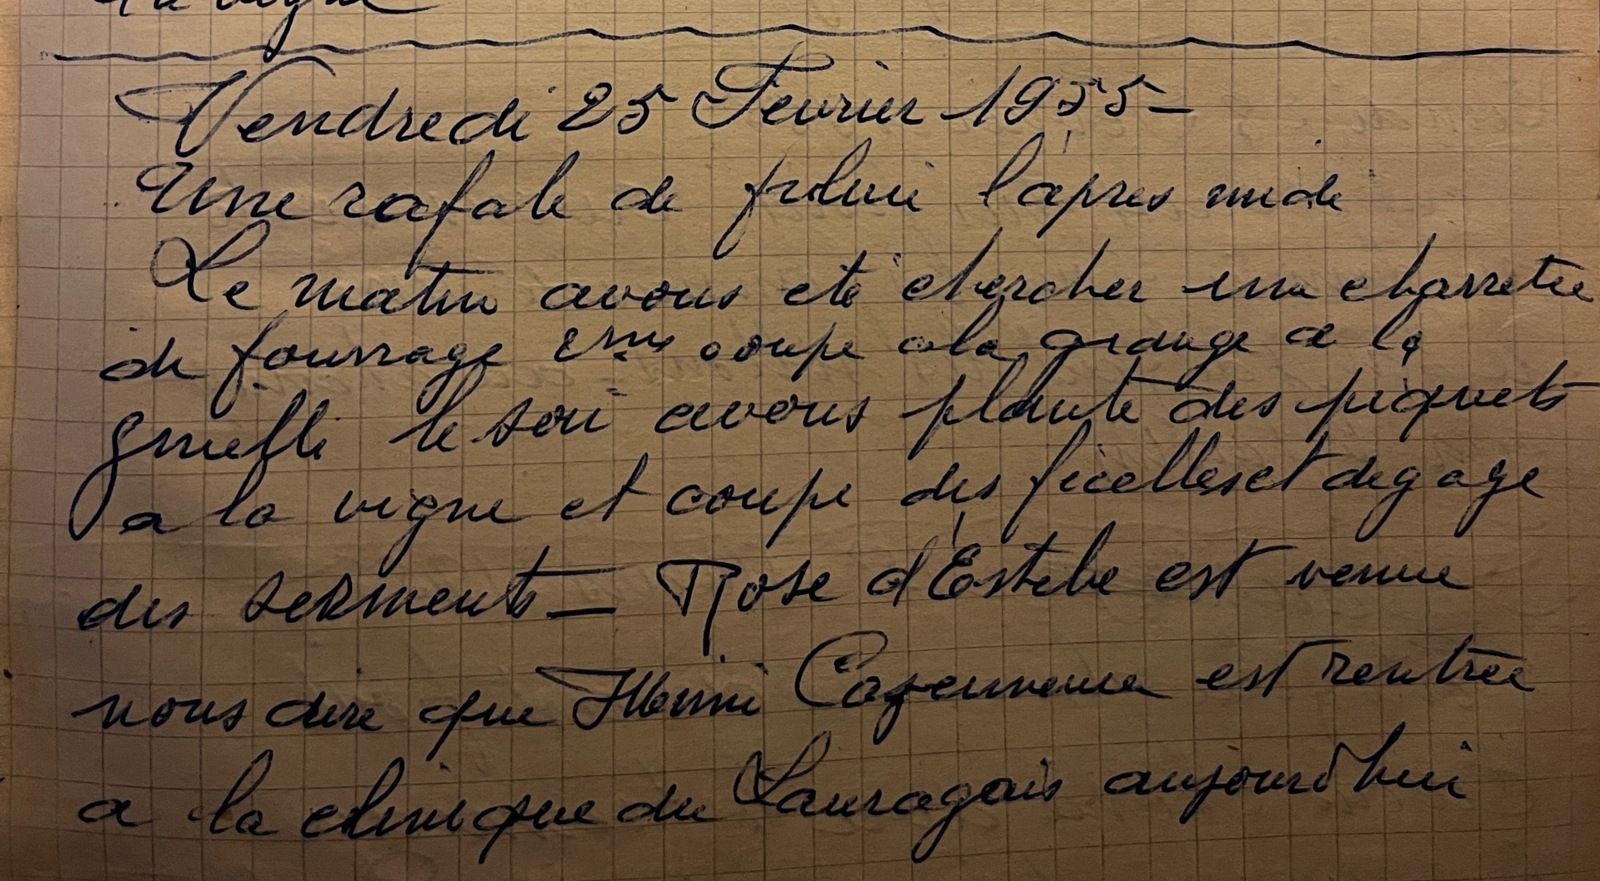 la vigne
Vendredi 25 Fevrier 1955 -
Une rafale de pluie l'apres mide
Le matin avons eté chercher une charretee
de fourrage 2eme coupe a la grange a la
le soir avons planté des piquets
a la vigne et coupe des ficelles et degage
des serments - Rose d'Estebe est venue
nous dire que Henri Cazeneuve est rentree
a la clinique du Lauragais aujourd'hui